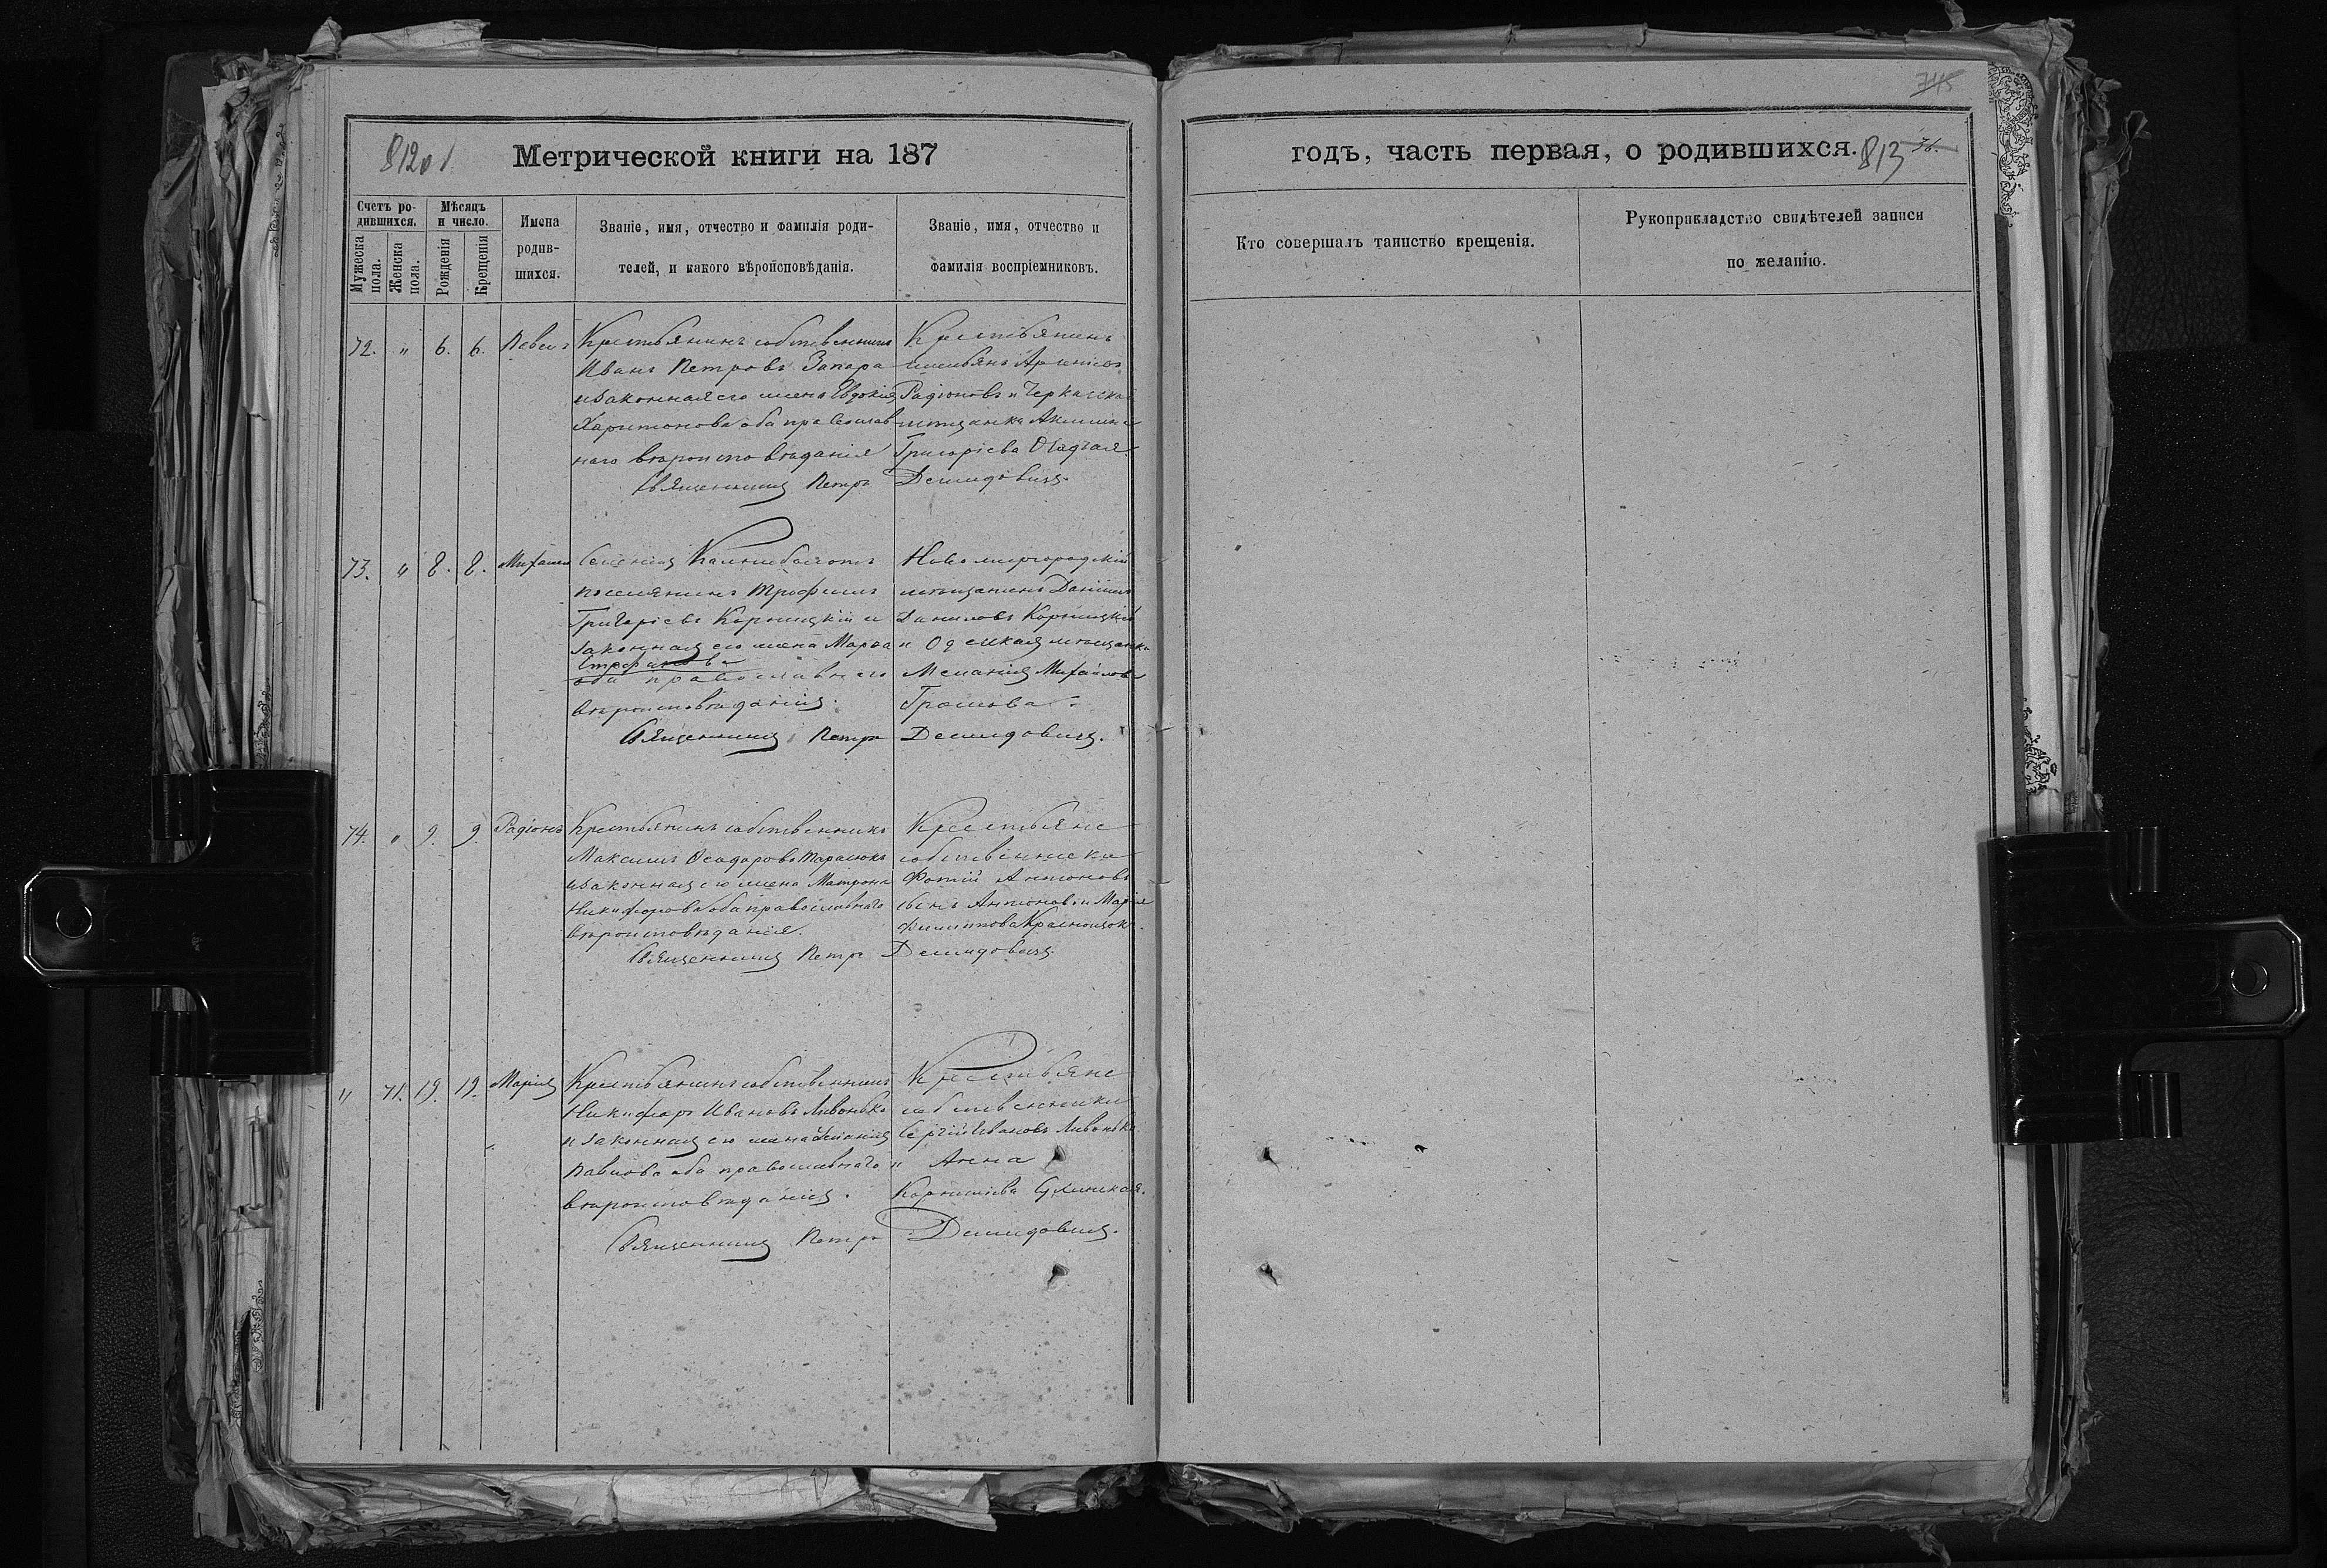 812 об
Метрической книги на 187
Счетъ ро-
дившихся.
Мѣсяцъ
и число.
Мужеска
пола.
Женска
пола.
Рожденія
Крещенія
Имена
родив-
шихся.
Званіе, имя, отчество и фамилія роди-
телей, и какого вѣроисповѣданія.
Званіе, имя, отчество и
фамилія воспріемниковъ.
72. " 6. 6. Павелъ
Крестьянинъ собственникъ
Иванъ Петровъ Запара
и законная его жена Евдокія
Харитонова оба православ
наго вѣроисповѣданія
Крестьянинъ
Радіоновъ и Черкаска
мѣщанка Акилина
Григоріева
Священникъ Петръ Демидовичъ.
73. " 8. 8. Михаилъ
поселянинъ Трофимъ
Григоріевъ Корницкій и
законная его жена Марѳа
оба православнаго
вѣроисповѣданія.
Ново миргородскій
мѣщанинъ Даніилъ
Даниловъ Корницкій
и Одесская мѣщанка
Меланія Михайлова
Громова.
Священникъ Петръ Демидовичъ.
74. " 9. 9. Радіонъ
Крестьянинъ собственникъ
Максимъ Ѳеодоровъ Тарасюкъ
и законная его жена Матрона
Никифорова оба православнаго
вѣроисповѣданія.
Крестьяне
собственники
Фотій Антоновъ
сынъ Антоновъ и Марія
Филиппова
Священникъ Петръ Демидовичъ.
" 71. 19. 19. Марія
Крестьянинъ собственникъ
Никифоръ Ивановъ Ливонько
и законная его жена Меланія
Павлова оба православнаго
вѣроисповѣданія.
Крестьяне
собственники
Сергій Ивановъ Ливонько
и Анна
Корниліева
Священникъ Петръ Демидовичъ.
745
годъ, часть первая, о родившихся.
813
Кто совершалъ таинство крещенія.
Рукоприкладство свидѣтелей записи
по желанію.